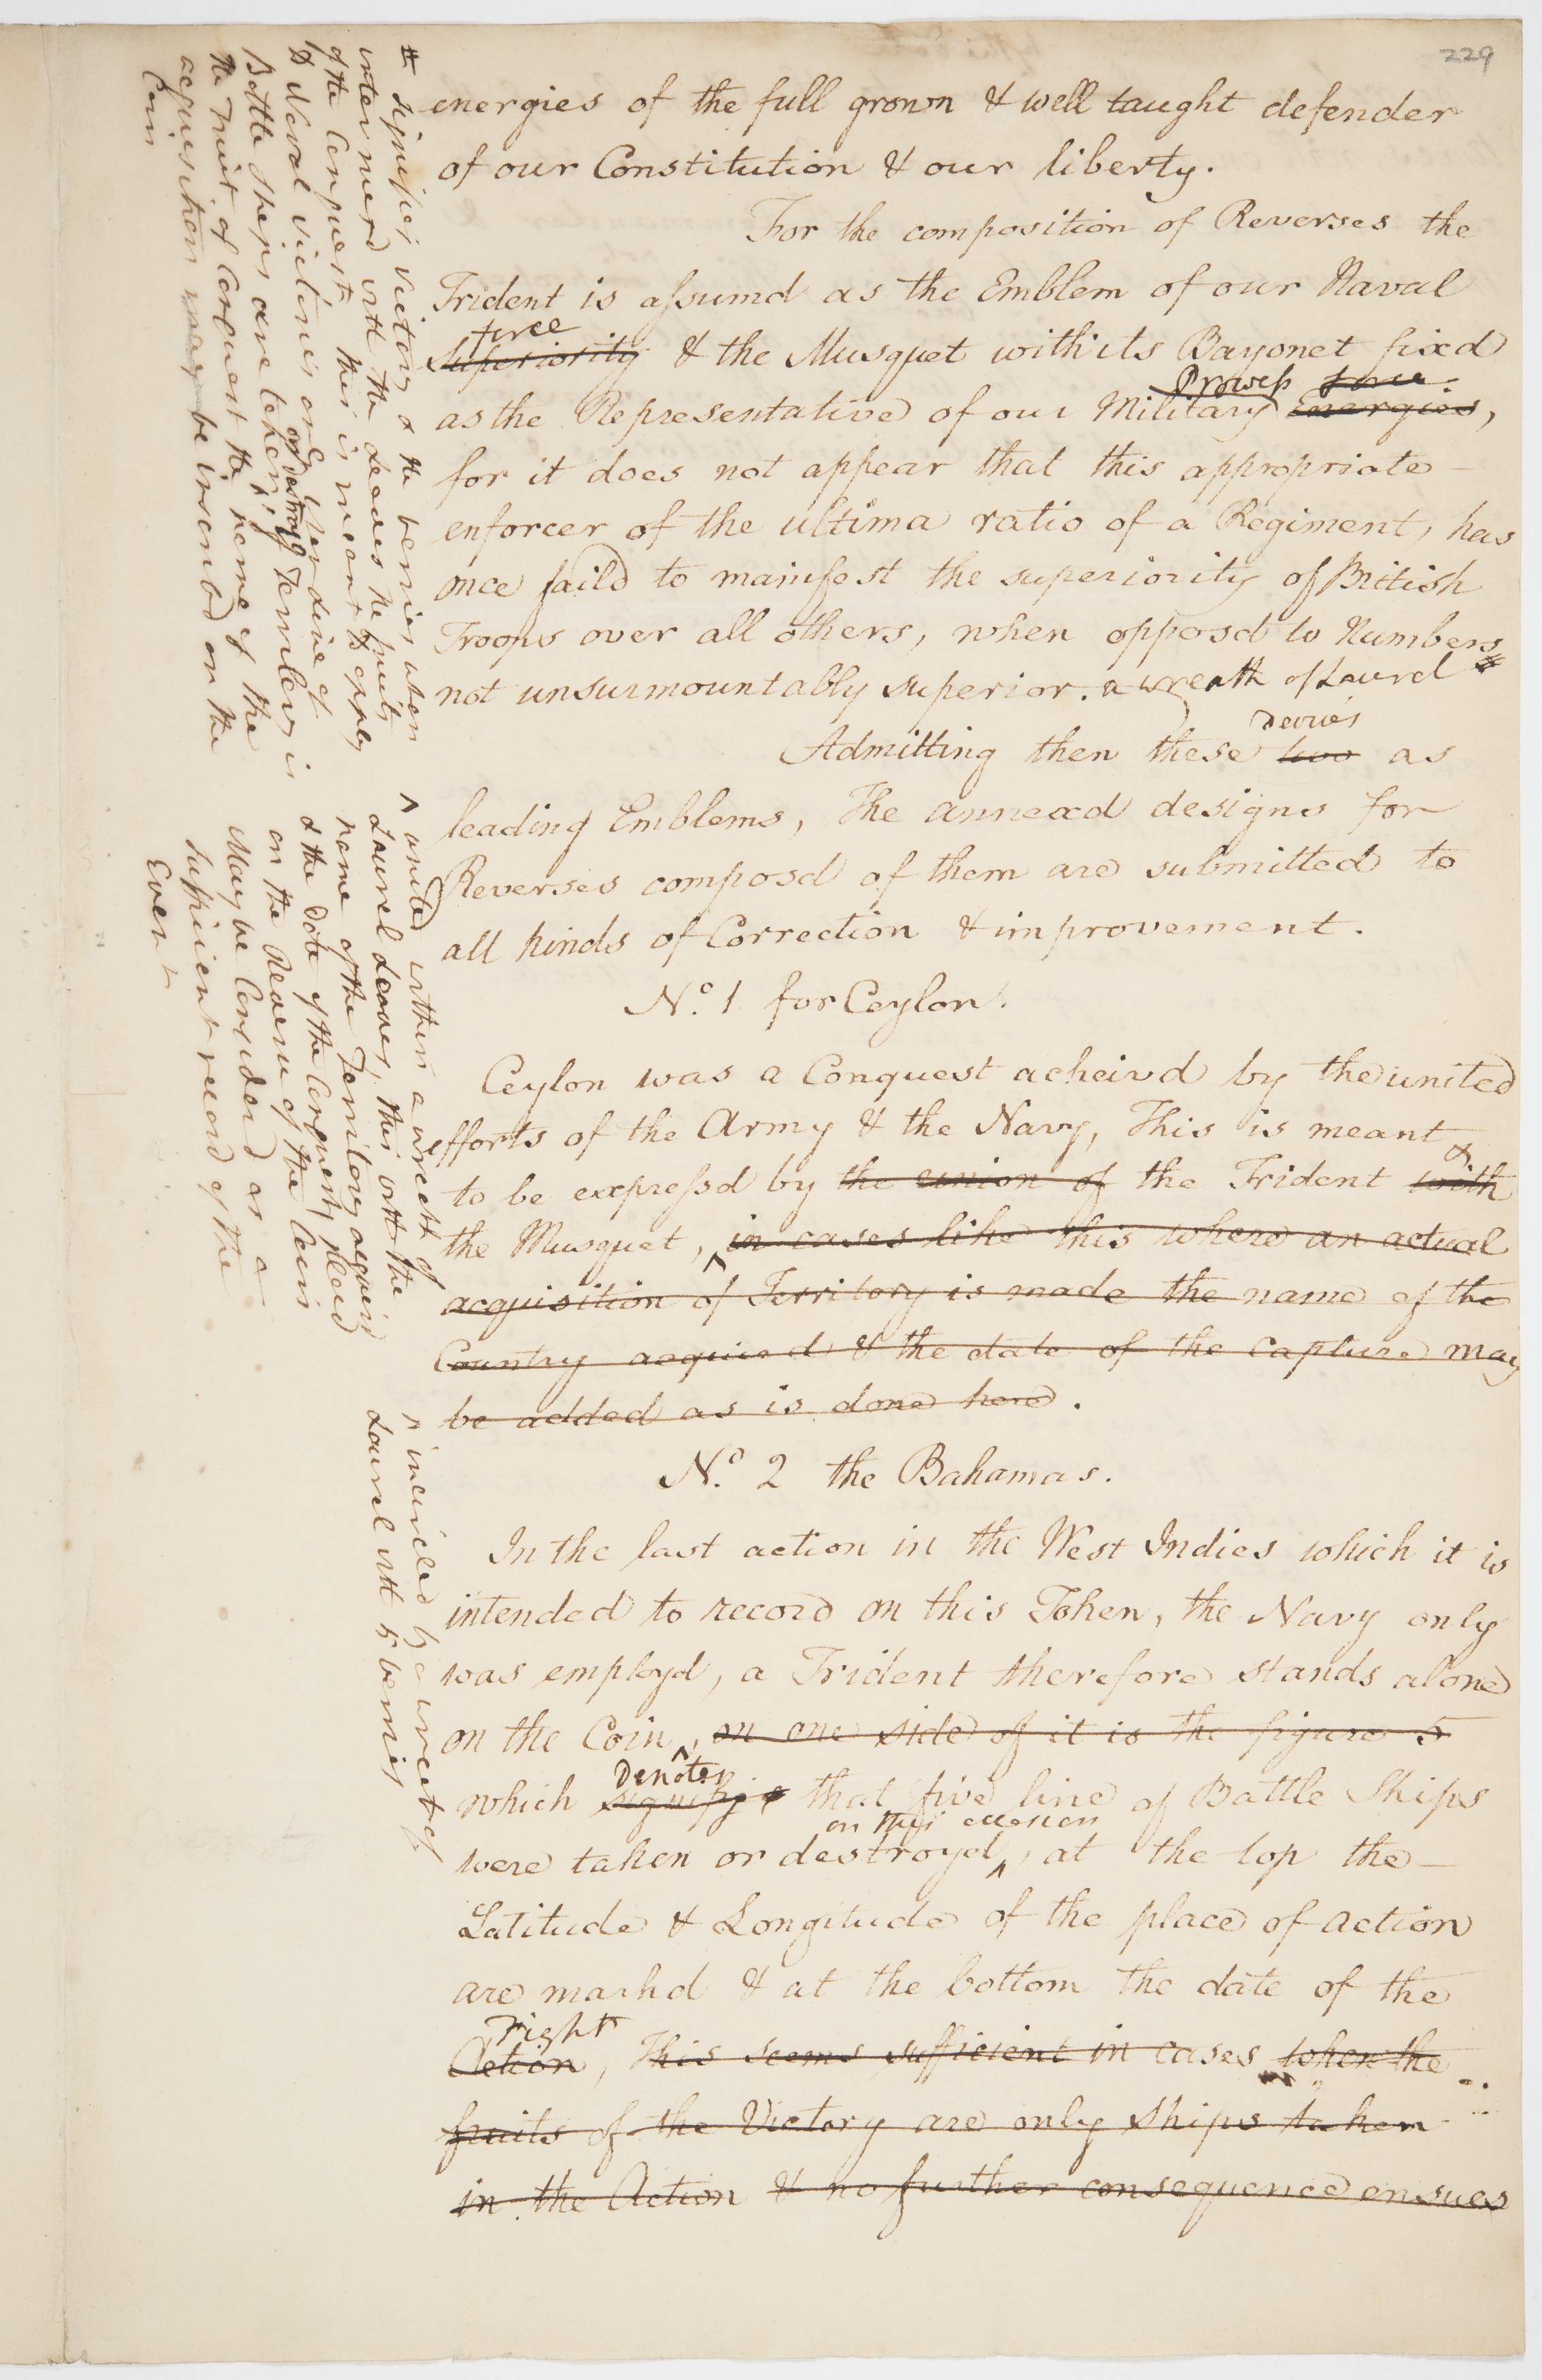 229
energies of the full grown & well taught defender
of our Constitution & our liberty.
For the composition of Reverses the
Trident is assumd as the Emblem of our Naval
force
Superiority & the Musquet with its Bayonet fixd
Prowess force
as the Representative of our Military Energies,
for it does not appear that this appropriate
enforcer of the ultima ratio of a Regiment, has
once faild to mainfest the superiority of British
Troops over all others, when opposd to Numbers
not unsurmountably superior. a wreath of Laurel #
Devices
Admitting then these two as
leading Emblems, The annexd designs for
Reverses composd of them are submitted to
all kinds of Correction & improvement.
No. 1 for Ceylon.
Ceylon was a Conquest acheivd by the united
efforts of the Army & the Navy, This is meant
&
to be expressd by the union of the Trident with
the Musquet, ^ in cases like this where an actual
acquisition of Territory is made the name of the
Country acquird & the date of the Capture may
be added as is done here.
No. 2 the Bahamas.
In the last action in the West Indies which it is
intended to record on this Token, the Navy only
was employd, a Trident therefore stands alone
on the Coin, ^ on one side of it is the figure 5
Denotes
which signifye that five line of Battle Ships
on this occasion
were taken or destroyd ^, at the top the
Latitude & Longitude of the place of action
are markd & at the bottom the date of the
Fight
Action, This seems sufficient in cases when the
fruits of the Victory are only Ships taken
in the Action & no further consequence ensues
# signifies victory & the berries when
intermixd with the Leaves the fruits
of the Conquest this is meant to apply
to Naval victories only when Line of
Battle ships are taken
or destroyd
^ if Territory is
the fruit of Conquest the name of the
acquisition may be inscribd on the
Coin
^ united within a wreath of
Laurel Leaves, this with the
name of the Territory acquird
& the date of the Conquest, placd
on the Reverse of the Coin
May be Considerd as a
sufficient record of the
Event
^ incircled by a wreath of
Laurel with 5 berries